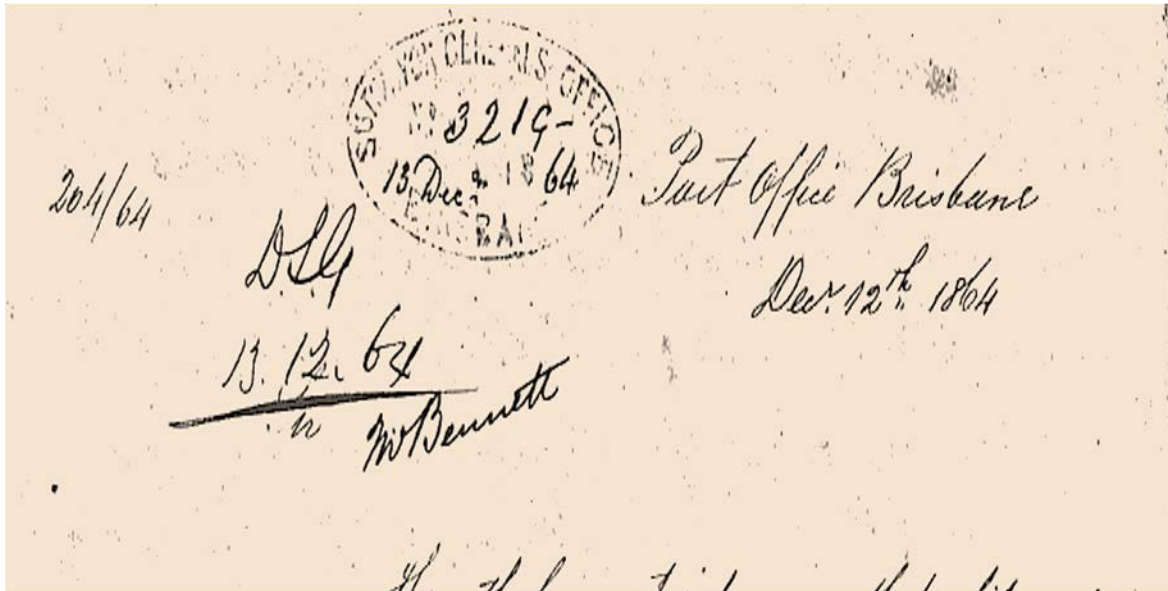 SURVEYOR GENERALS OFFICE
3219-
13 Decr 18 64
204/64
Post Office Brisbane
Decr. 12th 1864
D.S.G
13.12.64
Mr Bennett